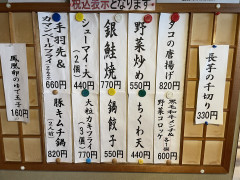 税込表示となります
タコの唐揚げ
820円
野菜炒め
550円
銀鮭焼
770円
シューマイ・大
(2個)
440円
手羽先&
カマンベールフライ
660円
黒毛和牛メンチ&
野菜コロッケ
600円
ちくわ天
440円
鍋餃子
550円
大粒カキフライ
(3ケ)
770円
豚キムチ鍋
(2人前)
820円
長芋の千切り
330円
鳳凰卵のゆで玉子
160円